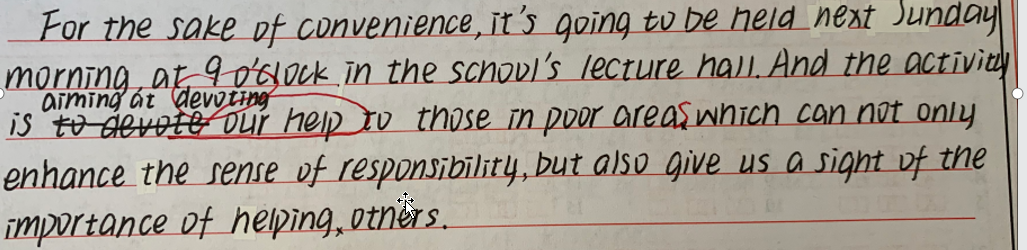 For the sake of convenience, it's going to be held next Sunday
morning, at 9 o'clock in the school's lecture hall. And the activity
aiming at devoting
is to devote our help to those in poor areas which can not only
enhance the sense of responsibility, but also give us a sight of the
importance of helping others.